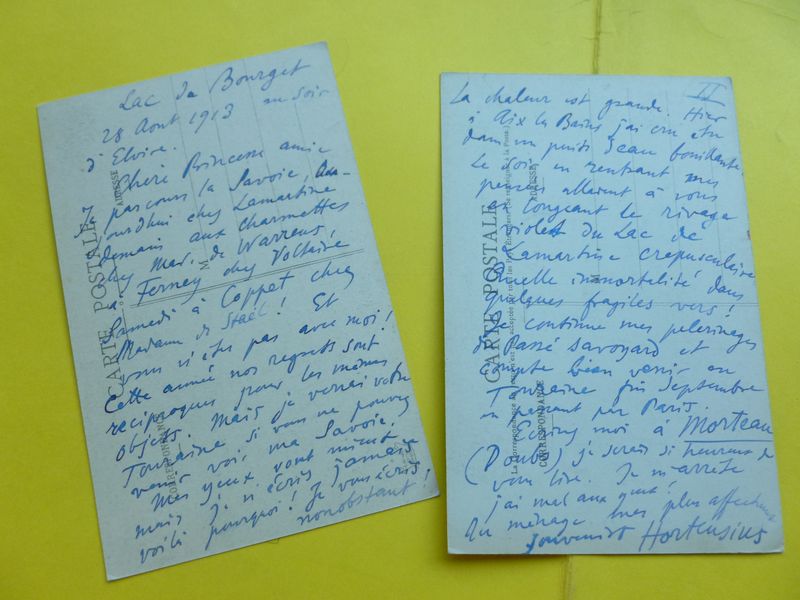 Lac du Bourget
28 Aout 1913 au soir
d'Elvire.
Chère Princesse amie
Je parcours la Savoie, Au-
jourd'hui chez Lamartine
demain aux Charmettes
chez Mad. de Warrens,
à Ferney chez Voltaire
Samedi à Coppet chez
Madame de Staël! Et
vous n'êtes pas avec moi!
Cette année nos regrets sont
réciproques pour les mêmes
objets. Mais je verrai votre
Touraine si vous ne pouvez
venir voir ma Savoie.
Mes yeux vont mieux
mais je n'écris jamais
voilà pourquoi! Je vous écris
nonobstant!
CARTE POSTALE
CORRESPONDANCE
ADRESSE
M
II
La chaleur est grande. Hier
à Aix les Bains j'ai cru être
dans un puits d'eau bouillante.
Le soir en rentrant mes
pensées allaient à vous
en longeant le rivage
violet du Lac de
Lamartine crepusculaire
Quelle immortalité dans
quelques fragiles vers!
Je continue mes pelerinages
de Passé savoyard et
compte bien venir en
Touraine fin Septembre
en passant par Paris.
Ecrivez moi à Morteau
(Doubs) je serais si heureux de
vous lire. Je m'arrête
j'ai mal aux yeux!
Au ménage mes plus affectueux
souvenirs Hortensius
CARTE POSTALE
La Correspondance au recto n'est pas acceptée par tous les Pays Etrangers (Se renseigner à la Poste)
CORRESPONDANCE
ADRESSE
M